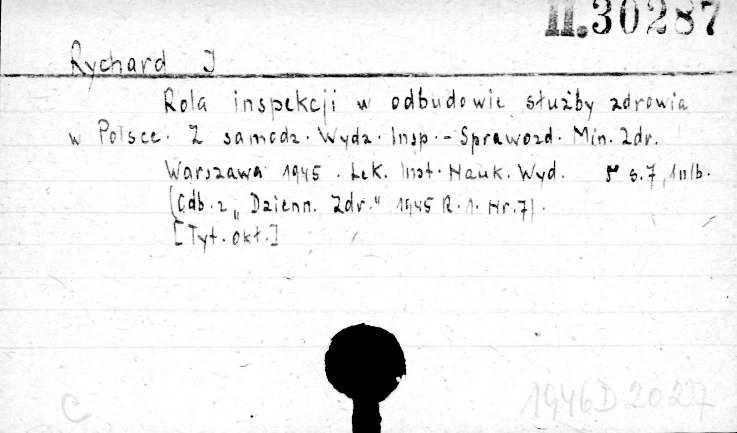 II.30287
Rychard J
Rola inspekcji w odbudowie służby zdrowia
w Polsce. Z samodz. Wydz. Insp.-Sprawozd. Min. Zdr.
Warszawa 1945. Lek. Inst. Nauk. Wyd. 8° s.7, 1nlb.
(Odb. z "Dzienn. Zdr." 1945 R.1. Nr.7).
[Tyt. okł.]
C 1946D2027